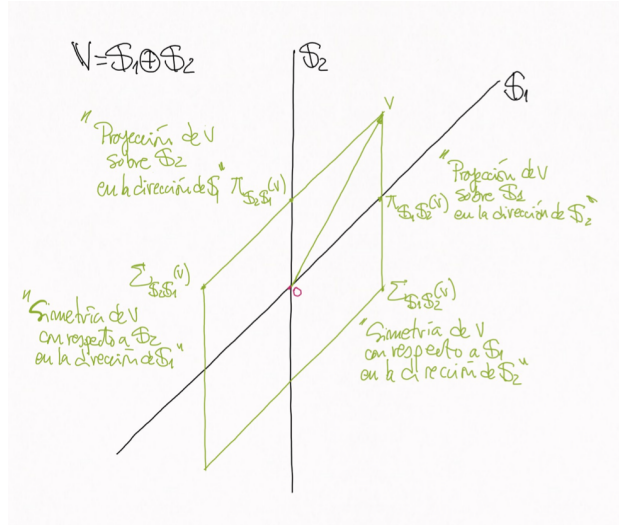 𝕍=𝕊₁⊕𝕊₂
𝕊₂
𝕊₁
v
"Proyección de v
sobre 𝕊₂
en la dirección de 𝕊₁"
π_𝕊₂𝕊₁(v)
"Proyección de v
sobre 𝕊₁
en la dirección de 𝕊₂"
π_𝕊₁𝕊₂(v)
Σ_𝕊₂𝕊₁(v)
"Simetría de v
con respecto a 𝕊₂
en la dirección de 𝕊₁"
0
Σ_𝕊₁𝕊₂(v)
"Simetría de v
con respecto a 𝕊₁
en la dirección de 𝕊₂"